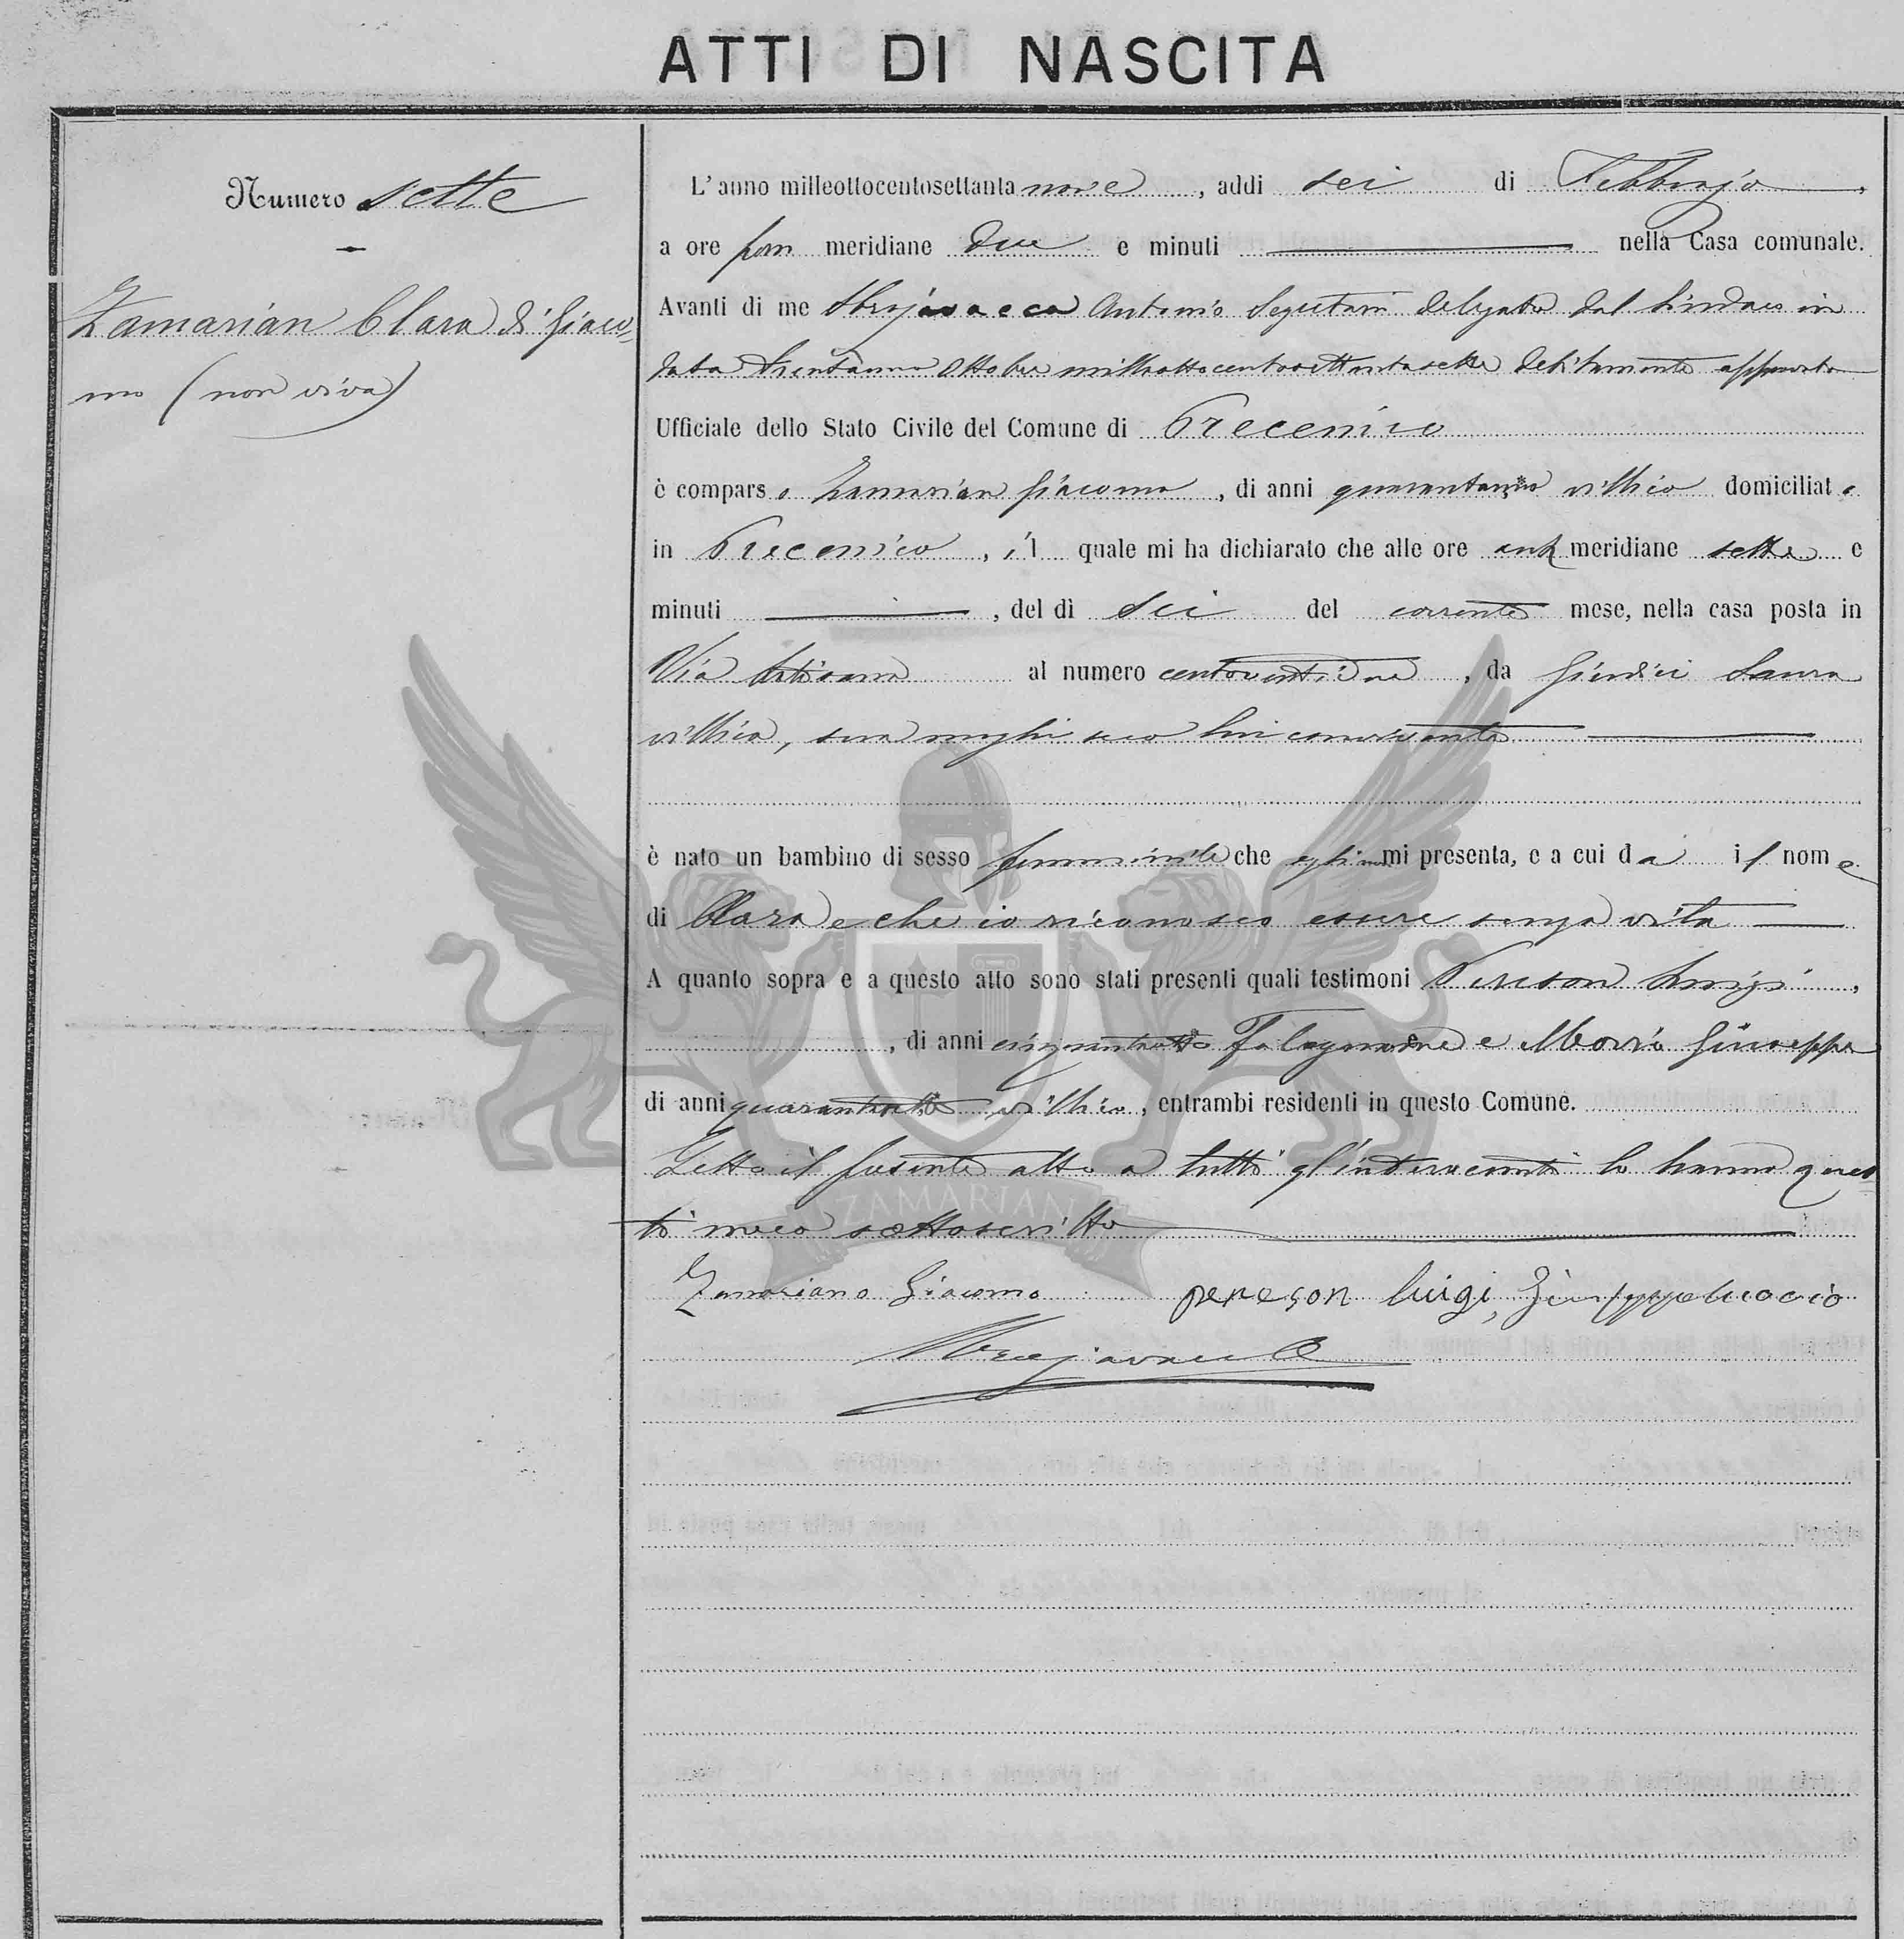 ATTI DI NASCITA
Numero sette
Zamarian Clara di Giaco-
mo (non viva)
L'anno milleottocentosettantanove, addi sei di Febbrajo,
a ore pom meridiane due e minuti nella Casa comunale.
Avanti di me Antonio Segretario delegato dal Sindaco in
data trentauno Ottobre milleottocentosettantasette debitamente approvato
Ufficiale dello Stato Civile del Comune di Precenico
è comparso Zamarian Giacomo, di anni villico domiciliato
in Precenico, il quale mi ha dichiarato che alle ore ant meridiane sette e
minuti , del dì sei del corrente mese, nella casa posta in
Via al numero centoventidue, da Giudici Laura
villica, sua moglie seco lui convivente
è nato un bambino di sesso femminile che egli mi presenta, e a cui da il nome
di Clara e che io riconosco essere senza vita
A quanto sopra e a questo atto sono stati presenti quali testimoni Pereson Luigi,
, di anni cinquantotto Falegname e Giuseppe
di anni quarantotto villico, entrambi residenti in questo Comune.
Letto il presente atto a tutti gl'intervenuti lo hanno ques-
ti meco sottoscritto
Zamariano Giacomo pereson luigi,
ZAMARIAN